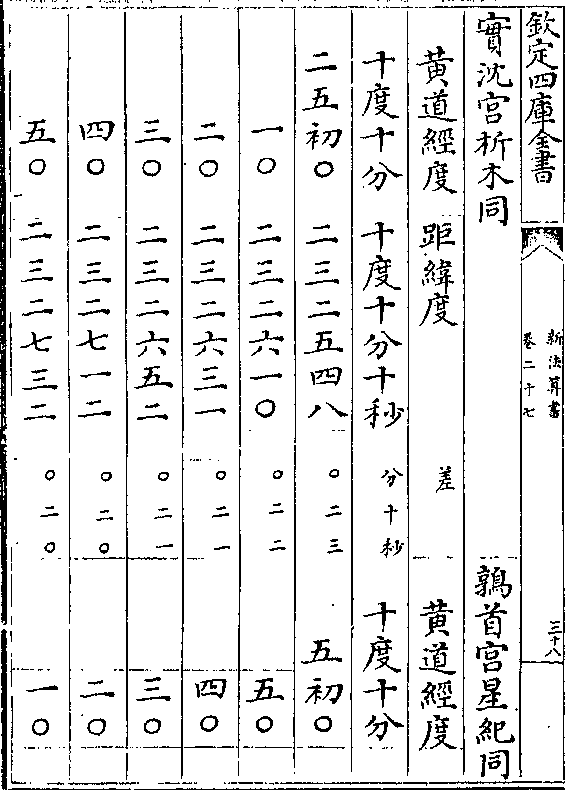 欽定四庫全書
新法算書
卷二十七
三十八
實沈宮析木同 鶉首宮星紀同
黃道經度 距緯度 差 黃道經度
十度十分 十度十分十秒 分十秒 十度十分
二五初〇 二三二五四八 〇二三 五初〇
一〇 二三二六一〇 〇二二 五〇
二〇 二三二六三一 〇二一 四〇
三〇 二三二六五二 〇二一 三〇
四〇 二三二七一二 〇二〇 二〇
五〇 二三二七三二 〇二〇 一〇